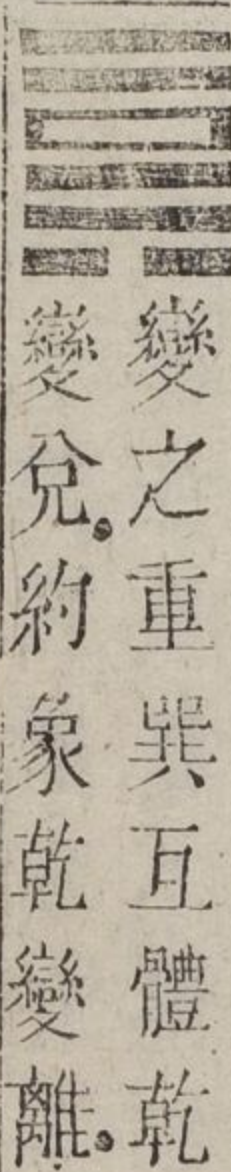 變之重巽互體乾
變兌。約象乾變離。